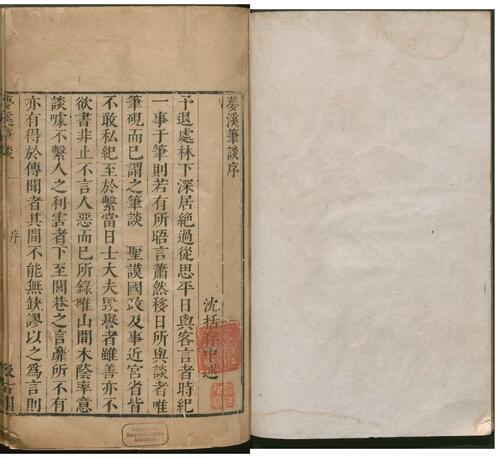 夢溪筆談序
沈括存中述
予退處林下深居絶過從思平日與客言者時紀
一事于筆則若有所晤言蕭然移日所與談者唯
筆硯而已謂之筆談　聖謨國政及事近宮省皆
不敢私紀至於繫當日士大夫毀譽者雖善亦不
欲書非止不言人惡而已所錄唯山間木蔭率意
談噱不繫人之利害者下至閭巷之言靡所不有
亦有得於傳聞者其間不能無缺謬以之爲言則
夢溪筆談
序